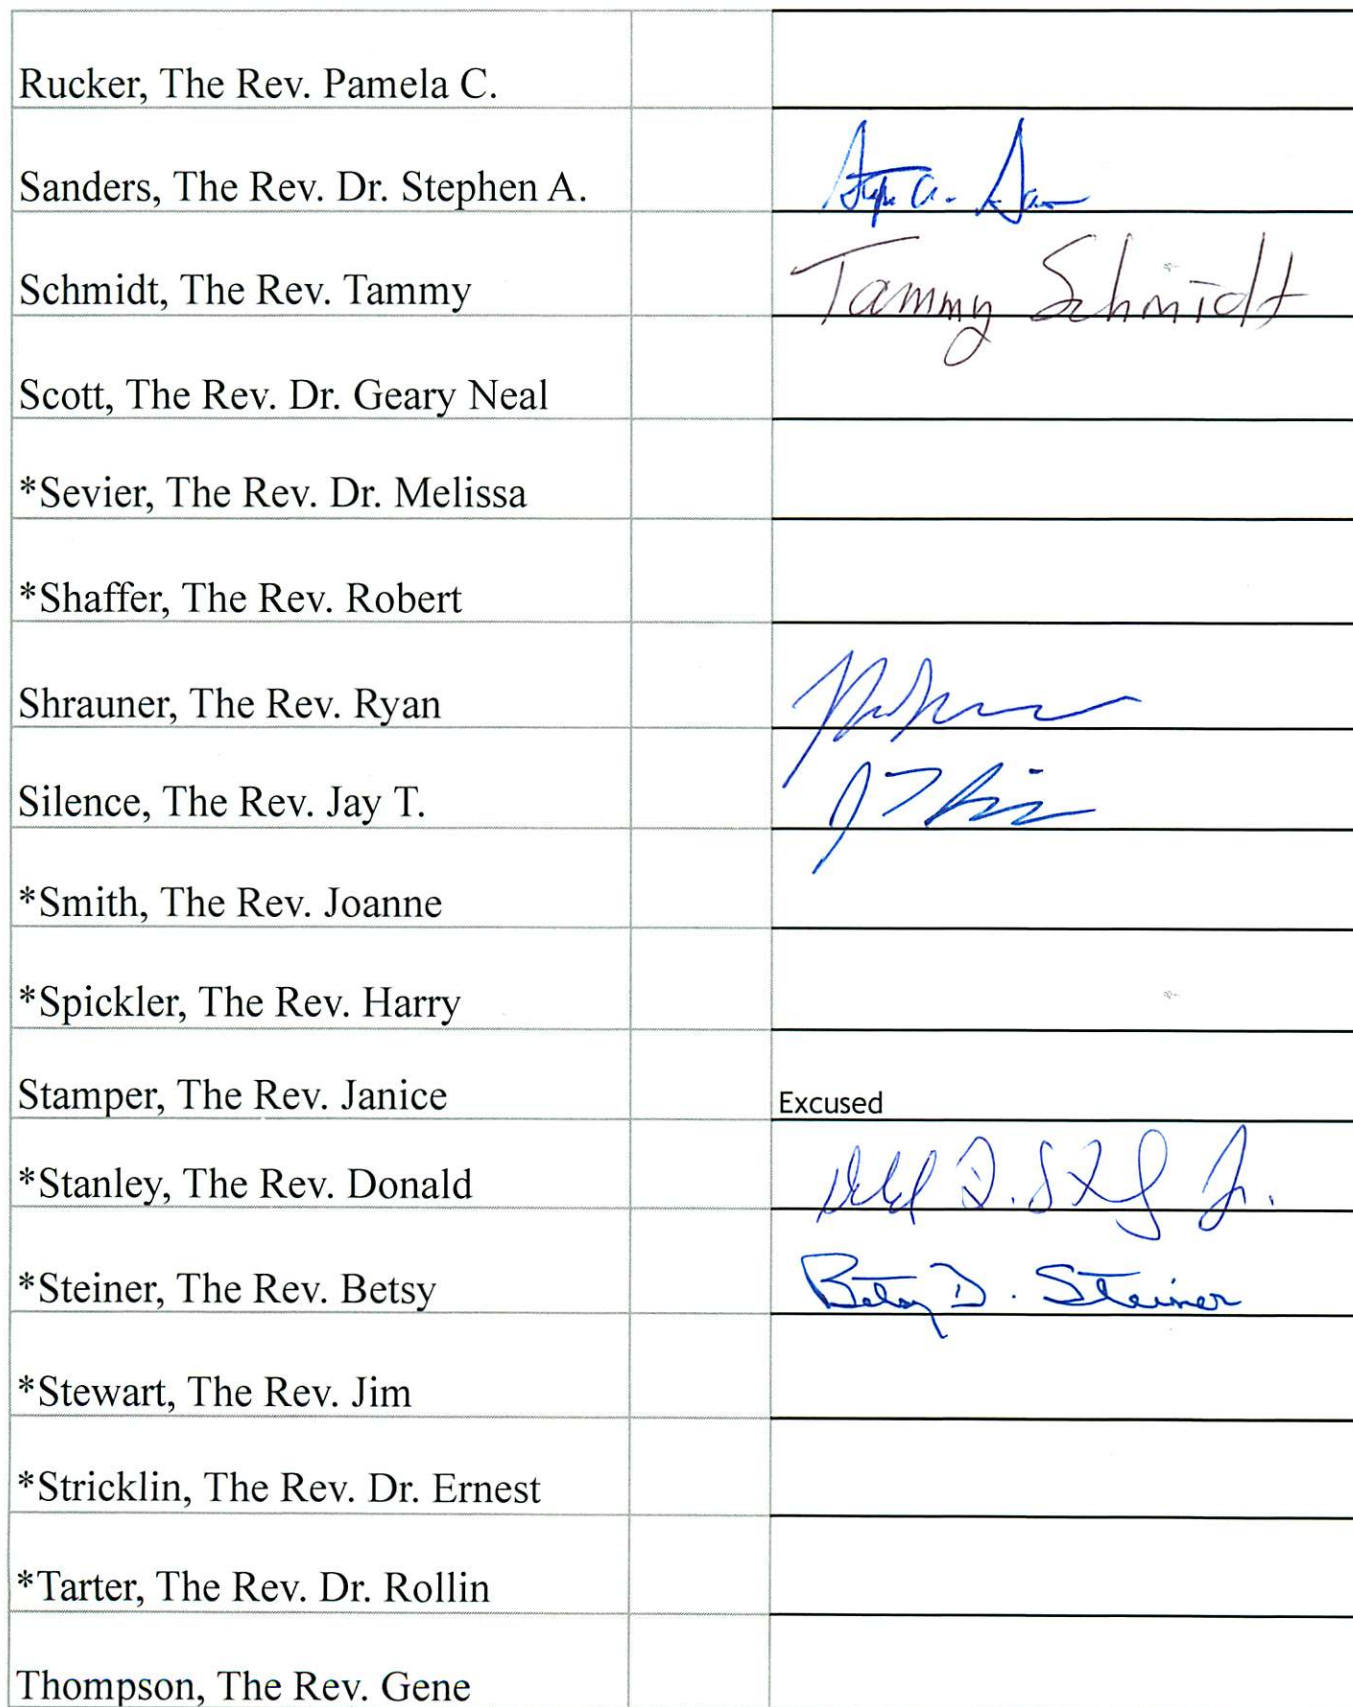 Rucker, The Rev. Pamela C.
Sanders, The Rev. Dr. Stephen A.
Schmidt, The Rev. Tammy Tammy Schmidt
Scott, The Rev. Dr. Geary Neal
*Sevier, The Rev. Dr. Melissa
*Shaffer, The Rev. Robert
Shrauner, The Rev. Ryan
Silence, The Rev. Jay T.
*Smith, The Rev. Joanne
*Spickler, The Rev. Harry
Stamper, The Rev. Janice Excused
*Stanley, The Rev. Donald Jr.
*Steiner, The Rev. Betsy Betsy D. Steiner
*Stewart, The Rev. Jim
*Stricklin, The Rev. Dr. Ernest
*Tarter, The Rev. Dr. Rollin
Thompson, The Rev. Gene